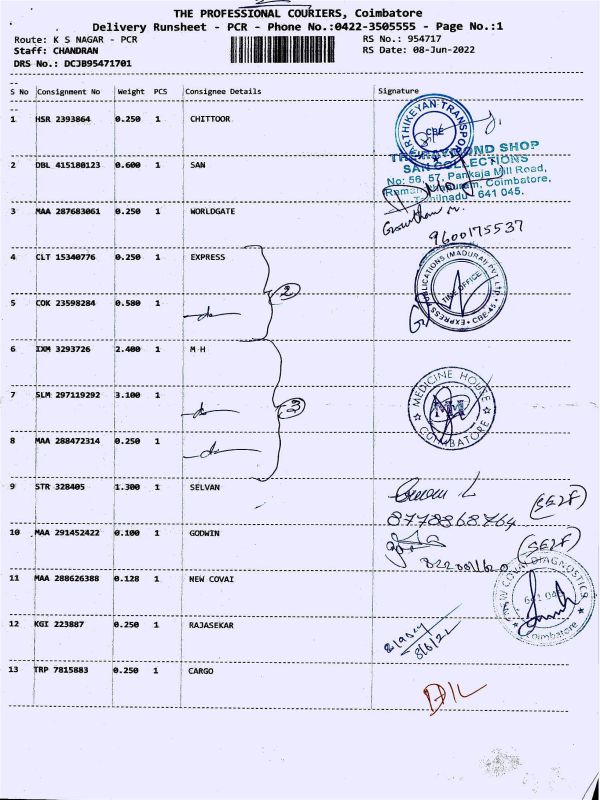 THE PROFESSIONAL COURIERS, Coimbatore
Delivery Runsheet - PCR - Phone No.:0422-3505555 - Page No.:1
Route: K S NAGAR - PCR RS No.: 954717
Staff: CHANDRAN RS Date: 08-Jun-2022
DRS No.: DCJB95471701
S No Consignment No Weight PCS Consignee Details Signature
1 HSR 2393864 0.250 1 CHITTOOR
KARTHIKEYAN TRANSPORT
CBE
2 DBL 415180123 0.600 1 SAN
THE RAYMOND SHOP
SAN COLLECTIONS
No: 56, 57, Pankaja Mill Road,
Ramanathapuram, Coimbatore,
Tamilnadu - 641 045.
3 MAA 287683061 0.250 1 WORLDGATE
Gowtham M.
9600175537
4 CLT 15340776 0.250 1 EXPRESS
EXPRESS PUBLICATIONS (MADURAI) PVT LTD
CBE-45
TIME OFFICE
2
5 COK 23598284 0.580 1 -do-
6 IXM 3293726 2.400 1 M H
MEDICINE HOUSE
COIMBATORE
7 SLM 297119292 3.100 1 -do-
3
8 MAA 288472314 0.250 1 -do-
9 STR 328405 1.300 1 SELVAN
(SELF)
8778868764
10 MAA 291452422 0.100 1 GODWIN
(SELF)
11 MAA 288626388 0.128 1 NEW COVAI
NEW COVAI DIAGNOSTICS
641 045
Coimbatore
12 KGI 223887 0.250 1 RAJASEKAR
8/6/22
13 TRP 7815883 0.250 1 CARGO
D/L